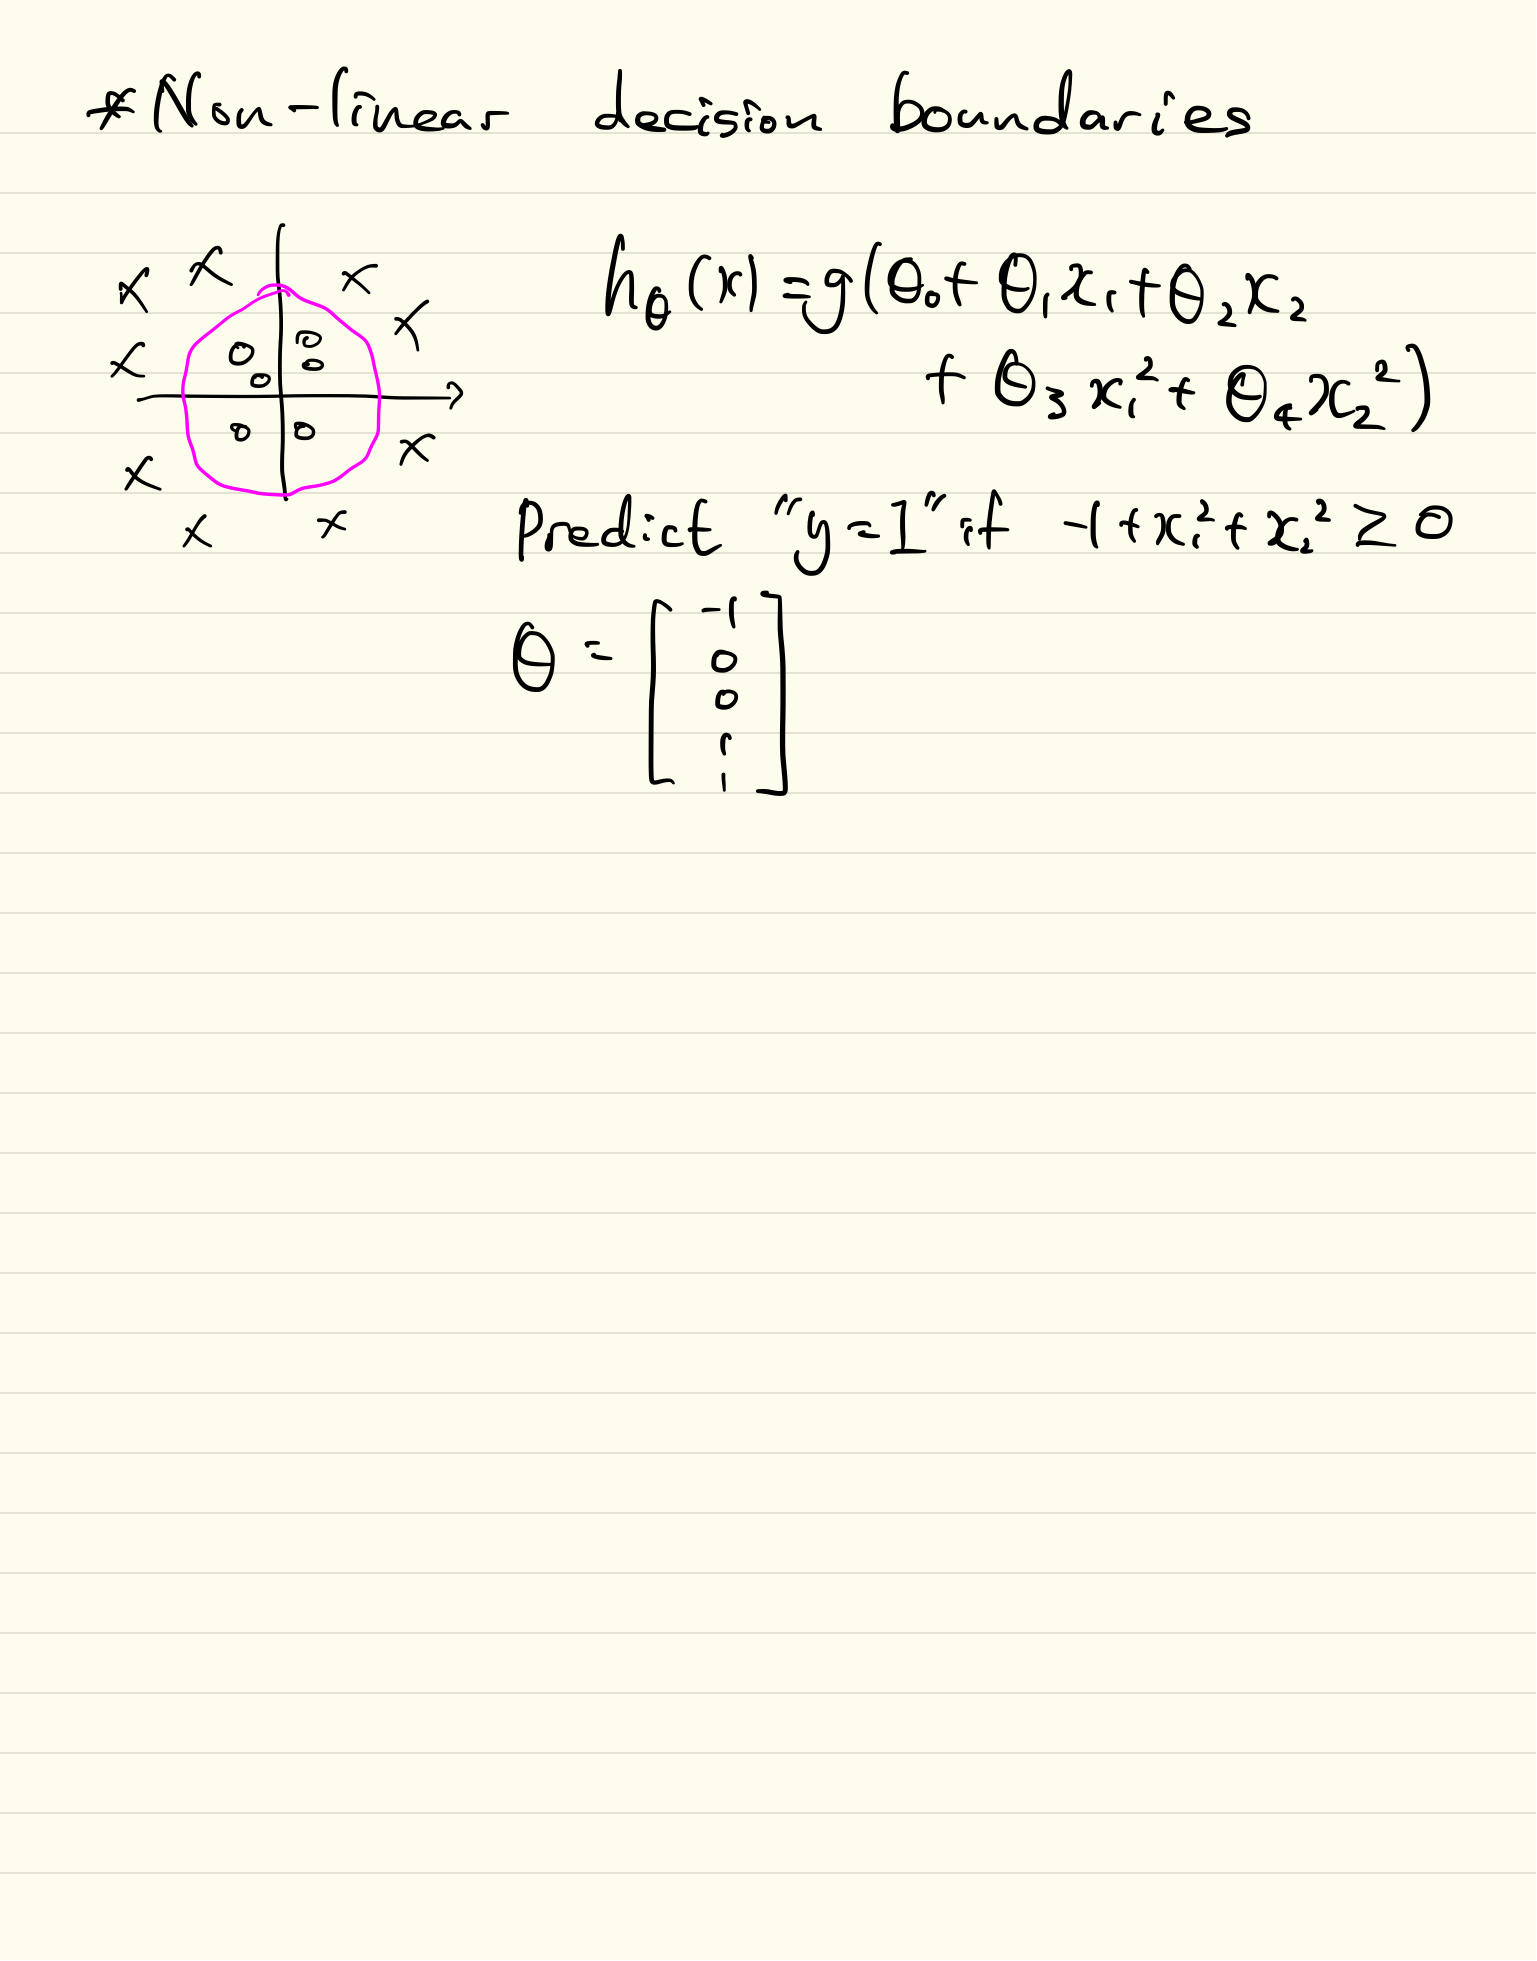 *Non-linear decision boundaries
h_θ(x) = g(θ₀ + θ₁x₁ + θ₂x₂
+ θ₃x₁² + θ₄x₂²)
Predict "y=1" if -1+x₁²+x₂² ≥ 0
θ = [ -1
0
0
1
1 ]